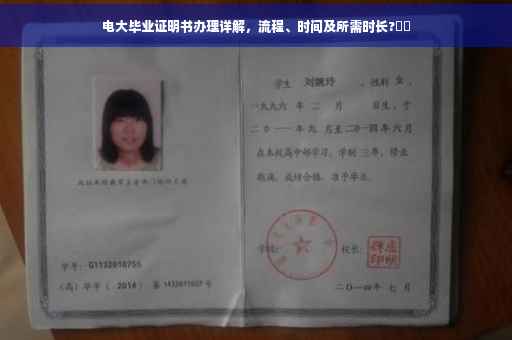 电大毕业证明书办理详解，流程、时间及所需时长?
学生 刘婉玲 ，性别 女 ，
一九九六 年 二 月 日生，于
二〇一一年九 月至二〇一四年六月
在本校高中部学习，学制 三年，修业
期满，成绩合格，准予毕业。
学校： 校长：
学号： G1132010755
（高）毕字（ 2014 ）第 1432011027 号
二〇一四年 七 月